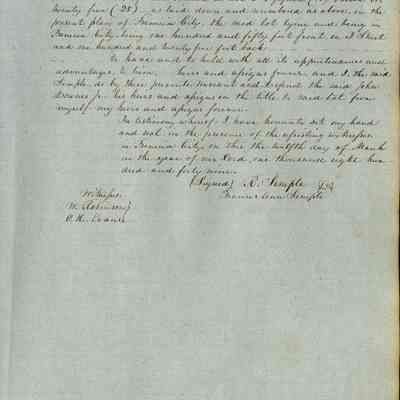 twenty five (25) as laid down and numbered as above, in the
present plan of Benicia City, the said lot lying and being in
Benicia City being one hundred and fifty feet front on I Street
and one hundred and twenty five feet back
To have and to hold with all its appurtenances and
advantages to him, heirs and assigns forever and I the said
Semple do by these presents warrant and defend the said John
his heirs and assigns in the title to said lot from
myself my heirs and assigns forever.
In testimony whereof I have hereunto set my hand
and seal in the presence of the attesting witnesses
in Benicia City on this the twelfth day of March
in the year of our Lord, one thousand eight hun
dred and forty nine.
(Signed) R. Semple
Frances Ann Semple
Witness,
W. Robinson
O. H. Evans